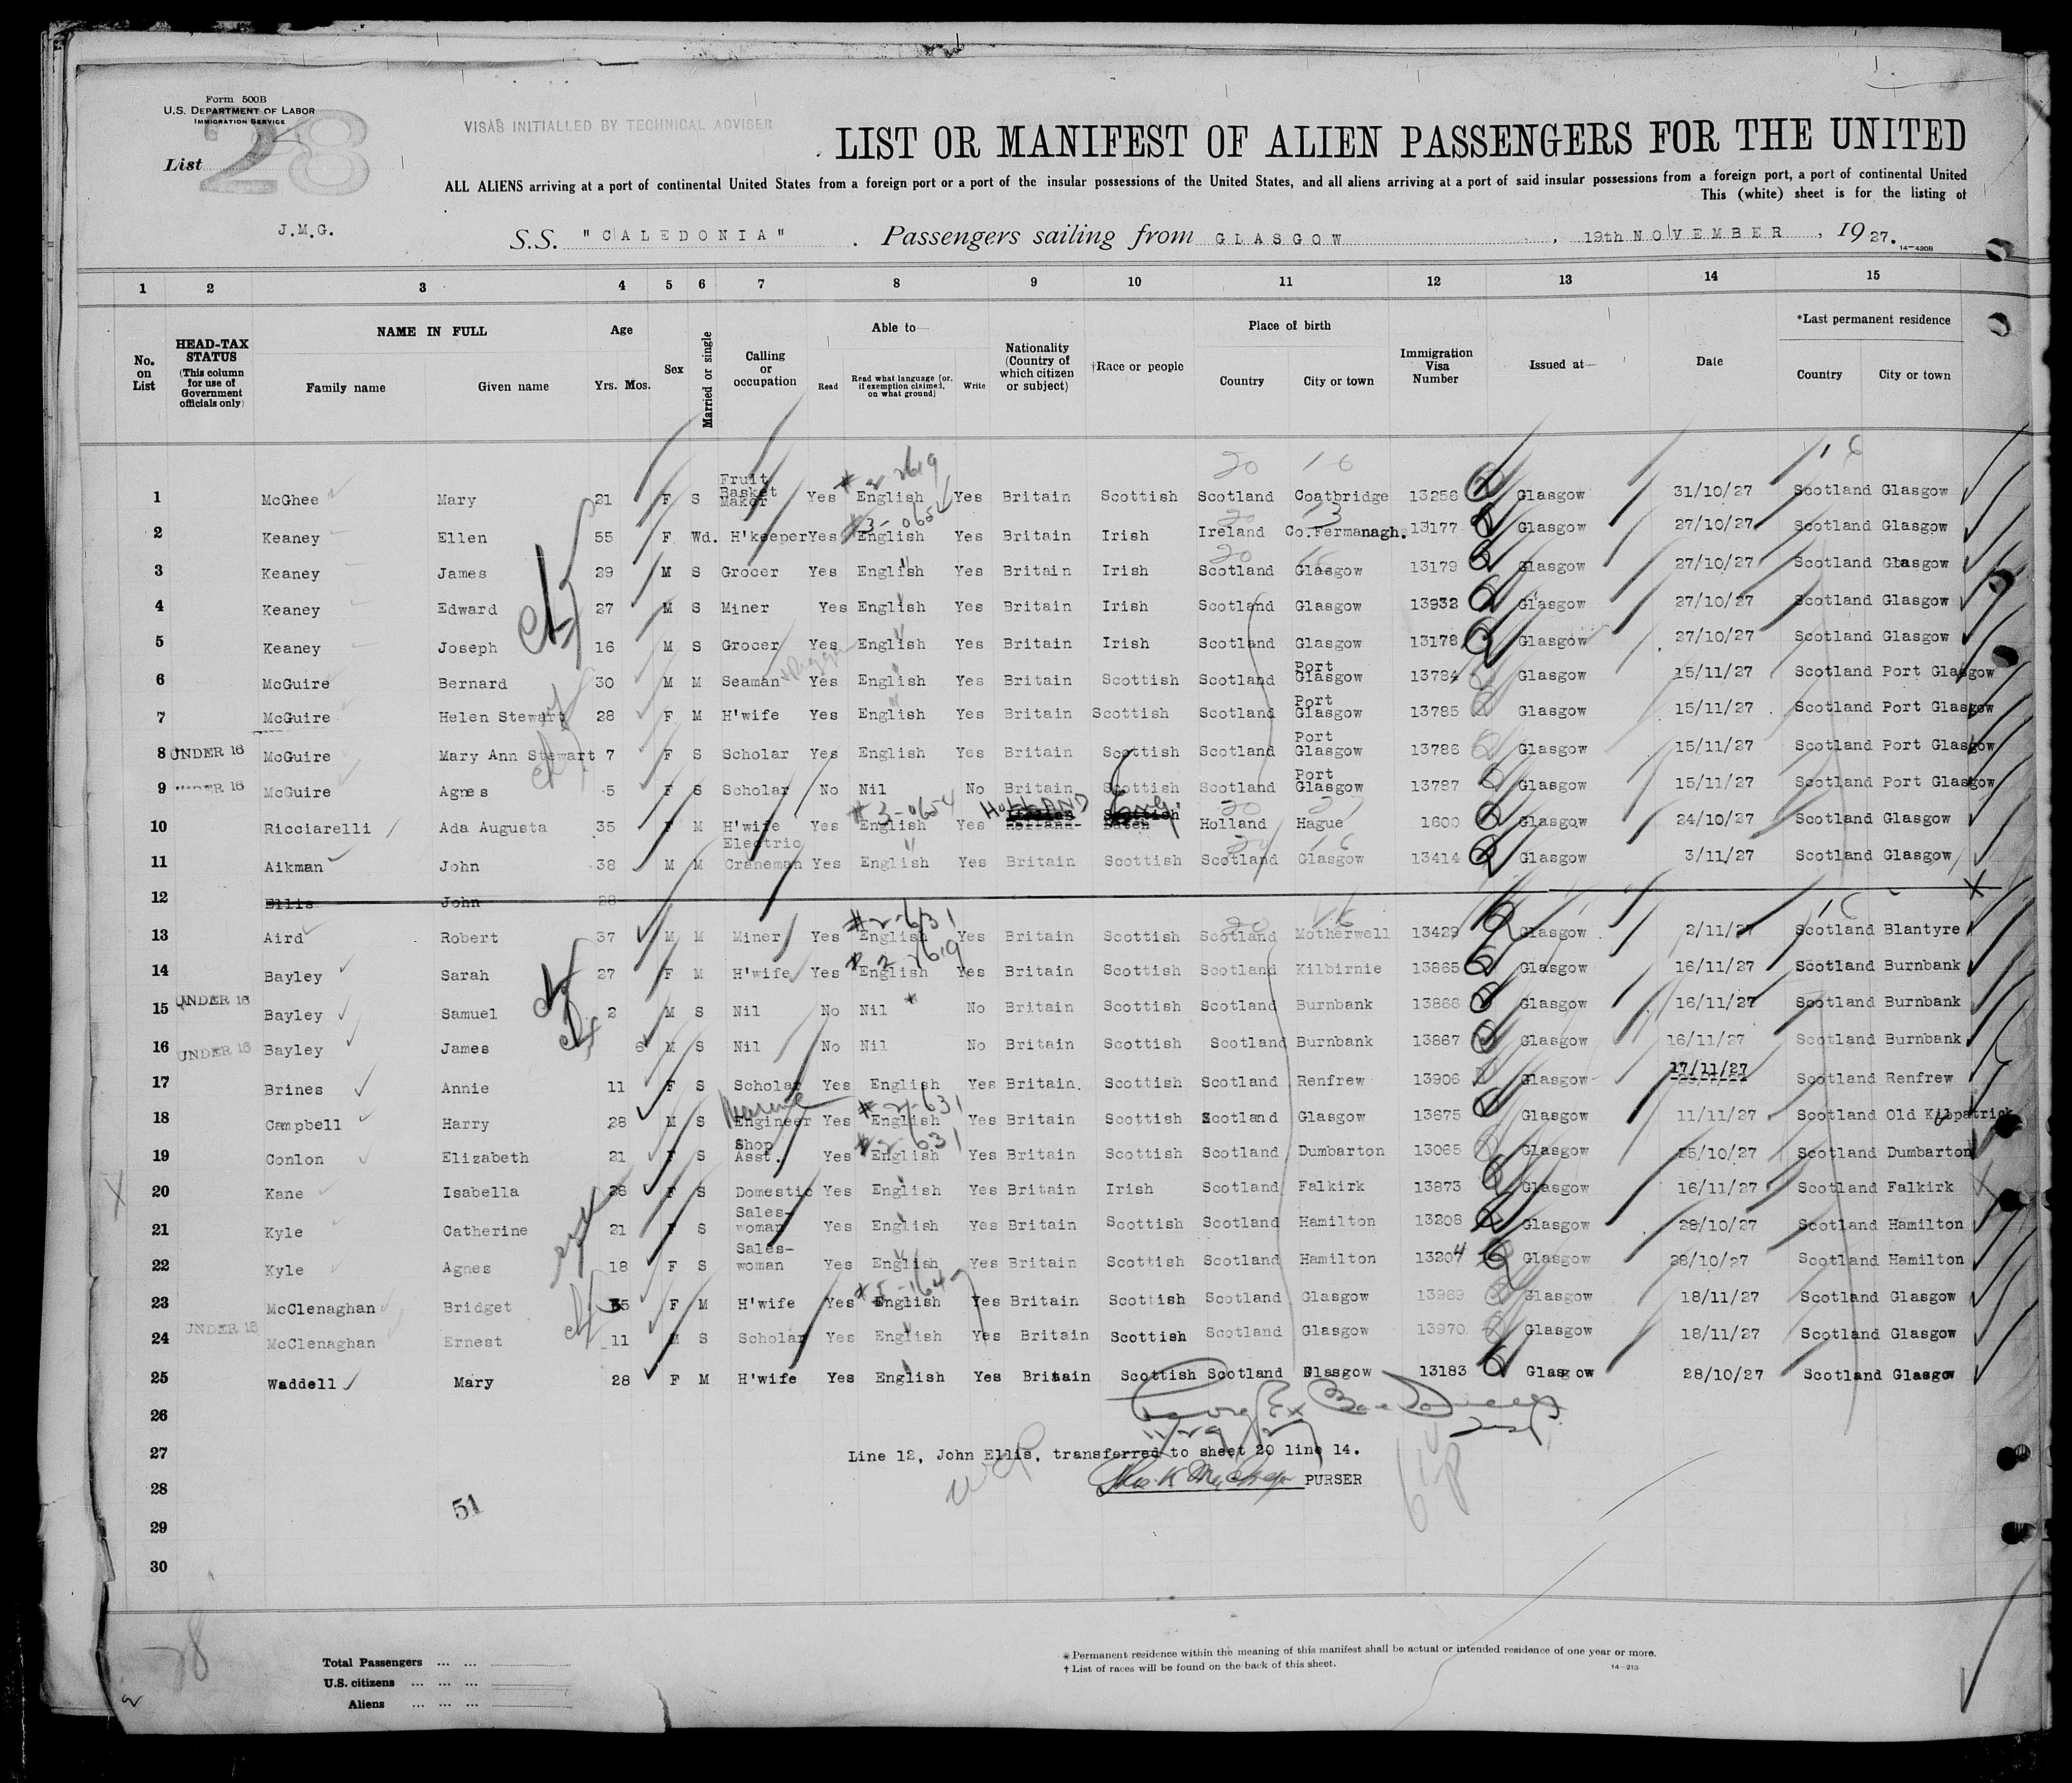 Form 500B
U.S. DEPARTMENT OF LABOR
IMMIGRATION SERVICE
List 28
VISAS INITIALLED BY TECHNICAL ADVISER
LIST OR MANIFEST OF ALIEN PASSENGERS FOR THE UNITED
ALL ALIENS arriving at a port of continental United States from a foreign port or a port of the insular possessions of the United States, and all aliens arriving at a port of said insular possessions from a foreign port, a port of continental United
This (white) sheet is for the listing of
J.M.G.
S.S. "CALEDONIA". Passengers sailing from GLASGOW, 19th NOVEMBER, 1927.
14-430B
1 2 3 4 5 6 7 8 9 10 11 12 13 14 15
No. on List
HEAD-TAX STATUS (This column for use of Government officials only)
NAME IN FULL Family name Given name
Age Yrs. Mos.
Sex
Married or single
Calling or occupation
Able to— Read Read what language [or, if exemption claimed, on what ground] Write
Nationality (Country of which citizen or subject)
†Race or people
Place of birth Country City or town
Immigration Visa Number
Issued at—
Date
*Last permanent residence Country City or town
20 16 16
1 McGhee Mary 21 F S Fruit Basket Maker Yes English Yes Britain Scottish Scotland Coatbridge 13256 Glasgow 31/10/27 Scotland Glasgow
2 Keaney Ellen 55 F Wd. H'keeper Yes English Yes Britain Irish Ireland Co.Fermanagh. 13177 Glasgow 27/10/27 Scotland Glasgow
3 Keaney James 29 M S Grocer Yes English Yes Britain Irish Scotland Glasgow 13179 Glasgow 27/10/27 Scotland Glasgow
4 Keaney Edward 27 M S Miner Yes English Yes Britain Irish Scotland Glasgow 13932 Glasgow 27/10/27 Scotland Glasgow
5 Keaney Joseph 16 M S Grocer Yes English Yes Britain Irish Scotland Glasgow 13178 Glasgow 27/10/27 Scotland Glasgow
6 McGuire Bernard 30 M M Seaman Yes English Yes Britain Scottish Scotland Port Glasgow 13784 Glasgow 15/11/27 Scotland Port Glasgow
7 McGuire Helen Stewart 28 F M H'wife Yes English Yes Britain Scottish Scotland Port Glasgow 13785 Glasgow 15/11/27 Scotland Port Glasgow
8 UNDER 16 McGuire Mary Ann Stewart 7 F S Scholar Yes English Yes Britain Scottish Scotland Port Glasgow 13786 Glasgow 15/11/27 Scotland Port Glasgow
9 UNDER 16 McGuire Agnes 5 F S Scholar No Nil No Britain Scottish Scotland Port Glasgow 13787 Glasgow 15/11/27 Scotland Port Glasgow
10 Ricciarelli Ada Augusta 35 F M H'wife Yes English Yes HOLLAND Holland Hague 1600 Glasgow 24/10/27 Scotland Glasgow
11 Aikman John 38 M M Electric Craneman Yes English Yes Britain Scottish Scotland Glasgow 13414 Glasgow 3/11/27 Scotland Glasgow
12 Ellis John 28
13 Aird Robert 37 M M Miner Yes English Yes Britain Scottish Scotland Motherwell 13429 Glasgow 2/11/27 Scotland Blantyre
14 Bayley Sarah 27 F M H'wife Yes English Yes Britain Scottish Scotland Kilbirnie 13865 Glasgow 16/11/27 Scotland Burnbank
15 UNDER 16 Bayley Samuel 2 M S Nil No Nil No Britain Scottish Scotland Burnbank 13866 Glasgow 16/11/27 Scotland Burnbank
16 UNDER 16 Bayley James 6 M S Nil No Nil No Britain Scottish Scotland Burnbank 13867 Glasgow 16/11/27 Scotland Burnbank
17 Brines Annie 11 F S Scholar Yes English Yes Britain. Scottish Scotland Renfrew 13906 Glasgow 17/11/27 Scotland Renfrew
18 Campbell Harry 28 M S Marine Engineer Yes English Yes Britain Scottish Scotland Glasgow 13675 Glasgow 11/11/27 Scotland Old Kilpatrick
19 Conlon Elizabeth 21 F S Shop Asst. Yes English Yes Britain Scottish Scotland Dumbarton 13065 Glasgow 25/10/27 Scotland Dumbarton
20 Kane Isabella 26 F S Domestic Yes English Yes Britain Irish Scotland Falkirk 13873 Glasgow 16/11/27 Scotland Falkirk
21 Kyle Catherine 21 F S Sales-woman Yes English Yes Britain Scottish Scotland Hamilton 13208 Glasgow 28/10/27 Scotland Hamilton
22 Kyle Agnes 18 F S Sales-woman Yes English Yes Britain Scottish Scotland Hamilton 13204 Glasgow 28/10/27 Scotland Hamilton
23 McClenaghan Bridget 35 F M H'wife Yes English Yes Britain Scottish Scotland Glasgow 13969 Glasgow 18/11/27 Scotland Glasgow
24 UNDER 16 McClenaghan Ernest 11 M S Scholar Yes English Yes Britain Scottish Scotland Glasgow 13970 Glasgow 18/11/27 Scotland Glasgow
25 Waddell Mary 28 F M H'wife Yes English Yes Britain Scottish Scotland Glasgow 13183 Glasgow 28/10/27 Scotland Glasgow
26
27 Line 12, John Ellis, transferred to sheet 20 line 14.
28 PURSER
51
29
30
28
Total Passengers ... ...
U.S. citizens ... ... ...
Aliens ... ... ...
* Permanent residence within the meaning of this manifest shall be actual or intended residence of one year or more.
† List of races will be found on the back of this sheet.
14-213